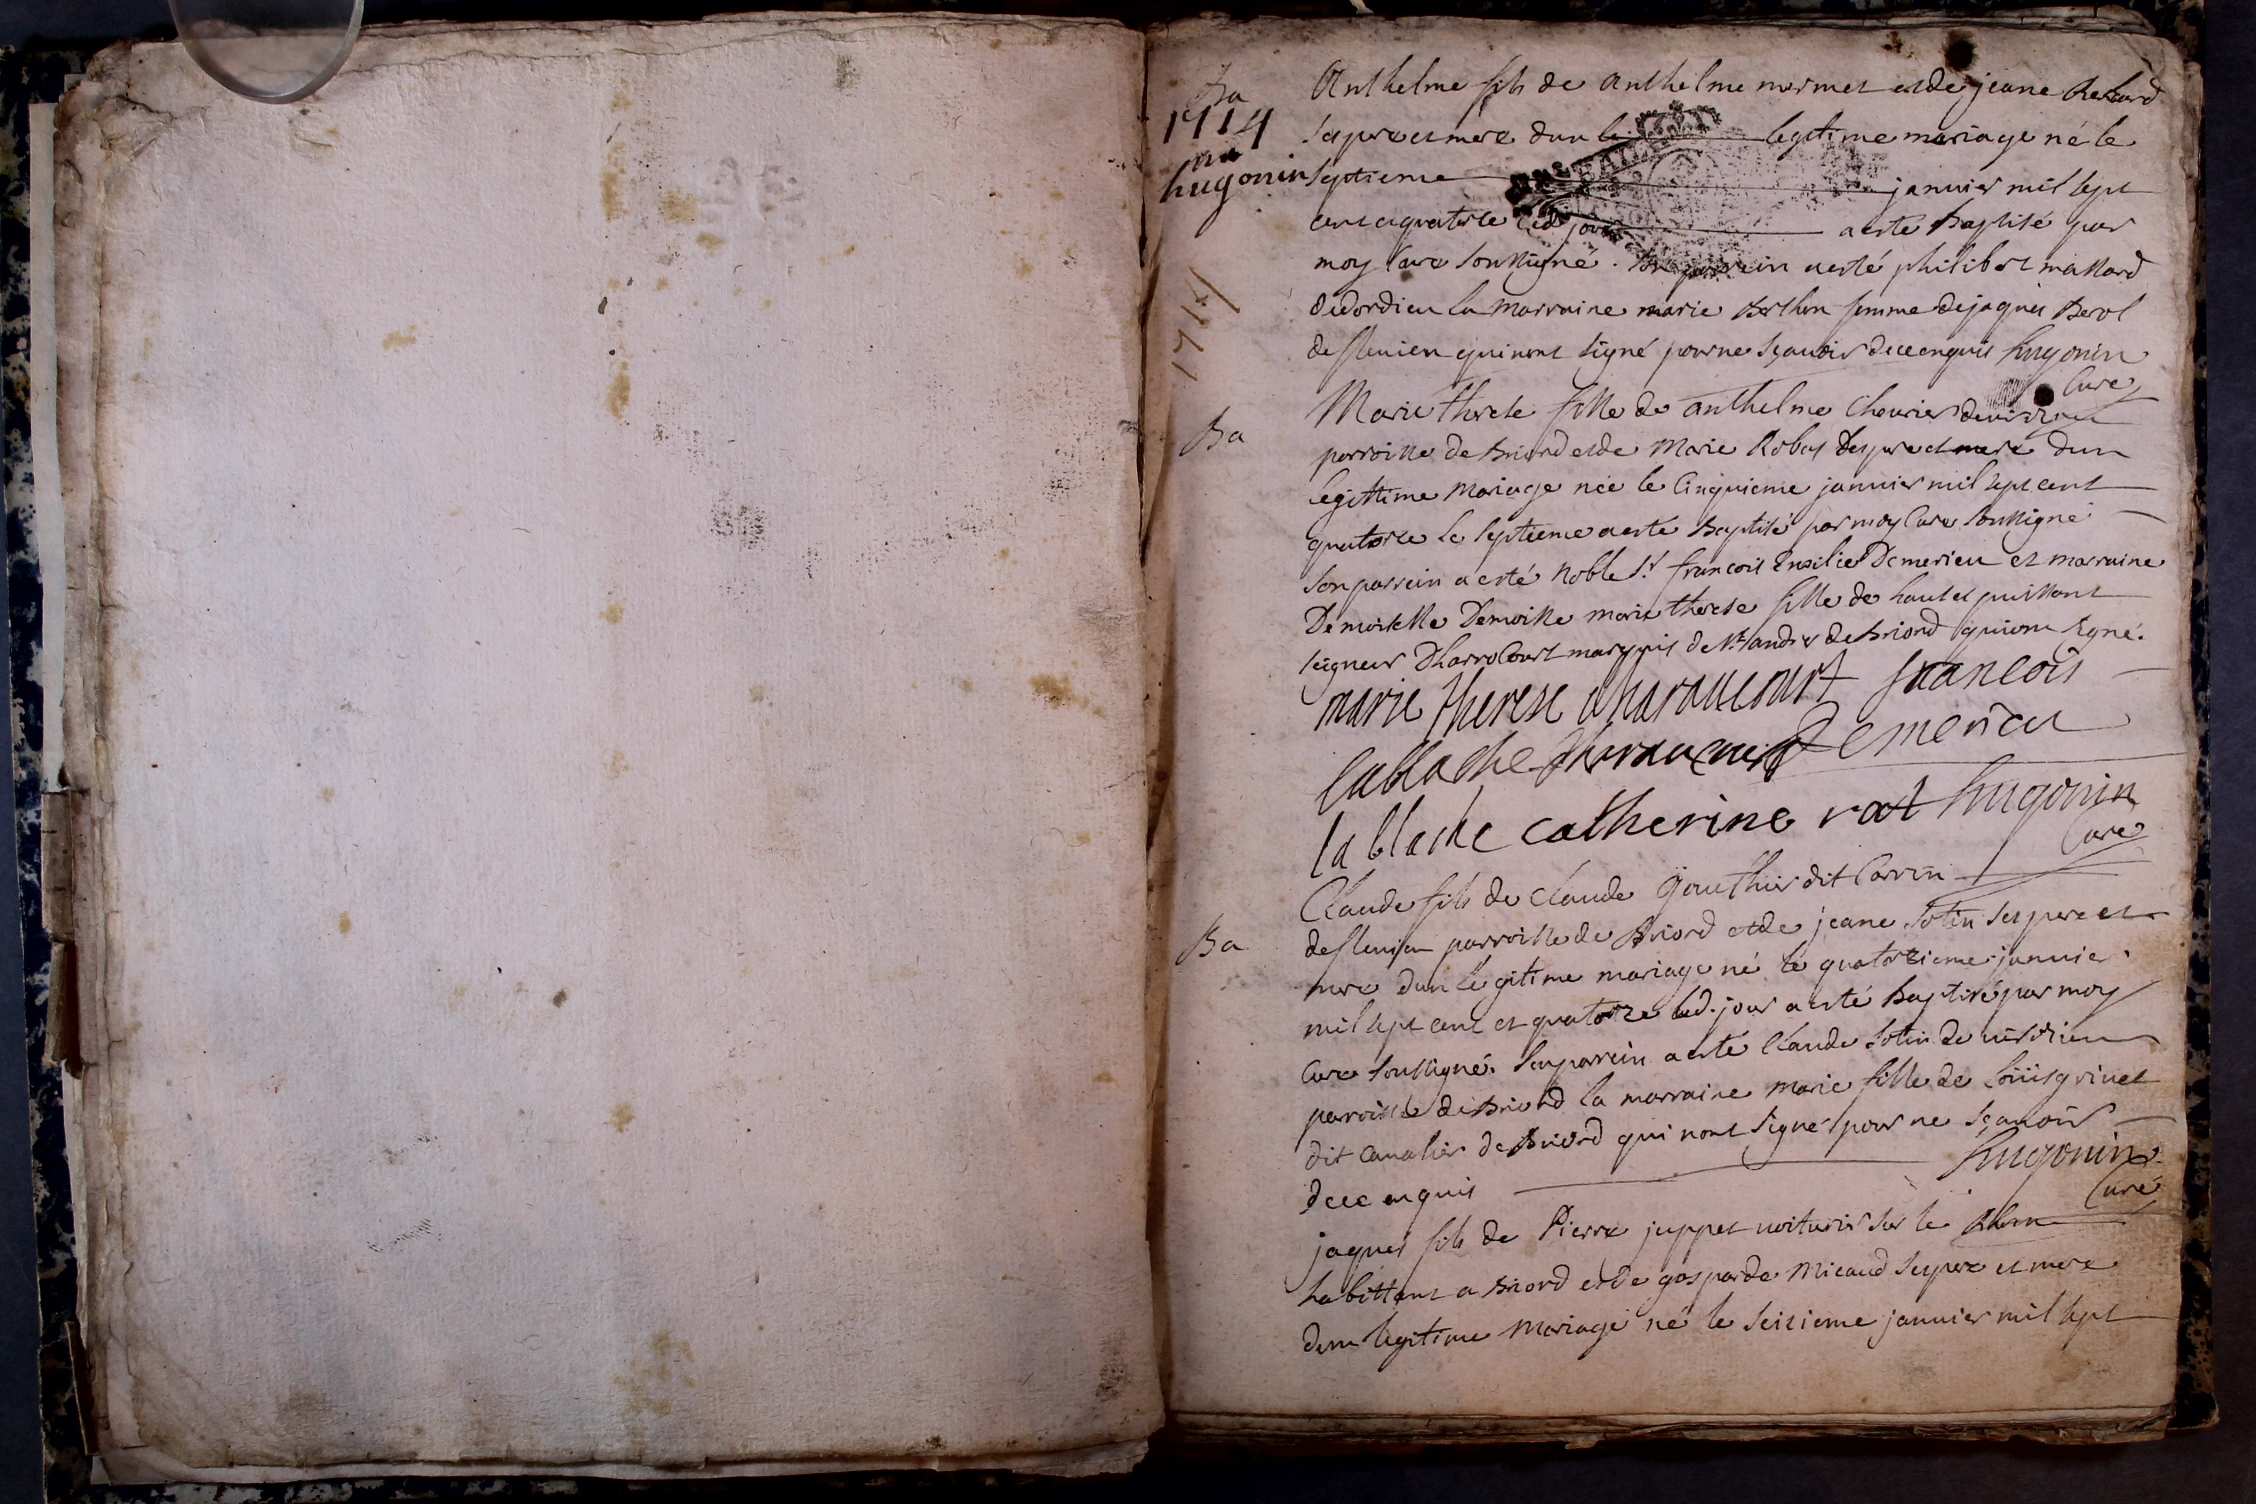 Ba
1714
mr
hugonin
1714
Anthelme fils de Anthelme mermet et de jeane
ses pere et mere dun legitime mariage né le
septieme janvier mil sept
cent et quatorze led jour a esté baptisé par
moy Cure soussigné. Son parrein a esté philibert massard
de dordieu la marraine marie Berthon femme de jaques
de flevieu qui nont signé pour ne sçavoir de ce enquis hugonin
Cure
Ba
Marie therese fille de anthelme Chevrier
parroisse de Briord et de Marie Robat ses pere et mere dun
legittime Mariage née le Cinquieme janvier mil sept cent
quatorze le septieme a esté Baptisé par moy Cure soussigné
Son parrein a esté Noble Sr. francois Demerieu et marraine
Demoiselle Demoiselle marie therese fille de haut et puissant
seigneur Dharrocourt marquis de St andré de Briord qui ont signé.
marie therese dharaucourt francois
lablache dharaucourt Demerieu
la blache catherine rat hugonin
Cure
Ba
Claude fils de Claude Gouthier dit Carrin
de flevieu parroisse de Briord et de jeane Sotin ses pere et
mere dun legitime mariage né le quatorzieme janvier
mil sept cent et quatorze led. jour a esté baptisé par moy
Cure soussigné. Son parrein a esté Claude Sotin de verdrieu
parroisse de Briord la marraine Marie fille de Loüis grinet
dit Cavalier de Briord qui nont signé pour ne sçavoir
de ce enquis hugonin
Curé
jaques fils de Pierre juppet voiturier sur le Rhone
habittant a Briord et de gasparde Micaud ses pere et mere
dun legitime Mariage né le seizieme janvier mil sept